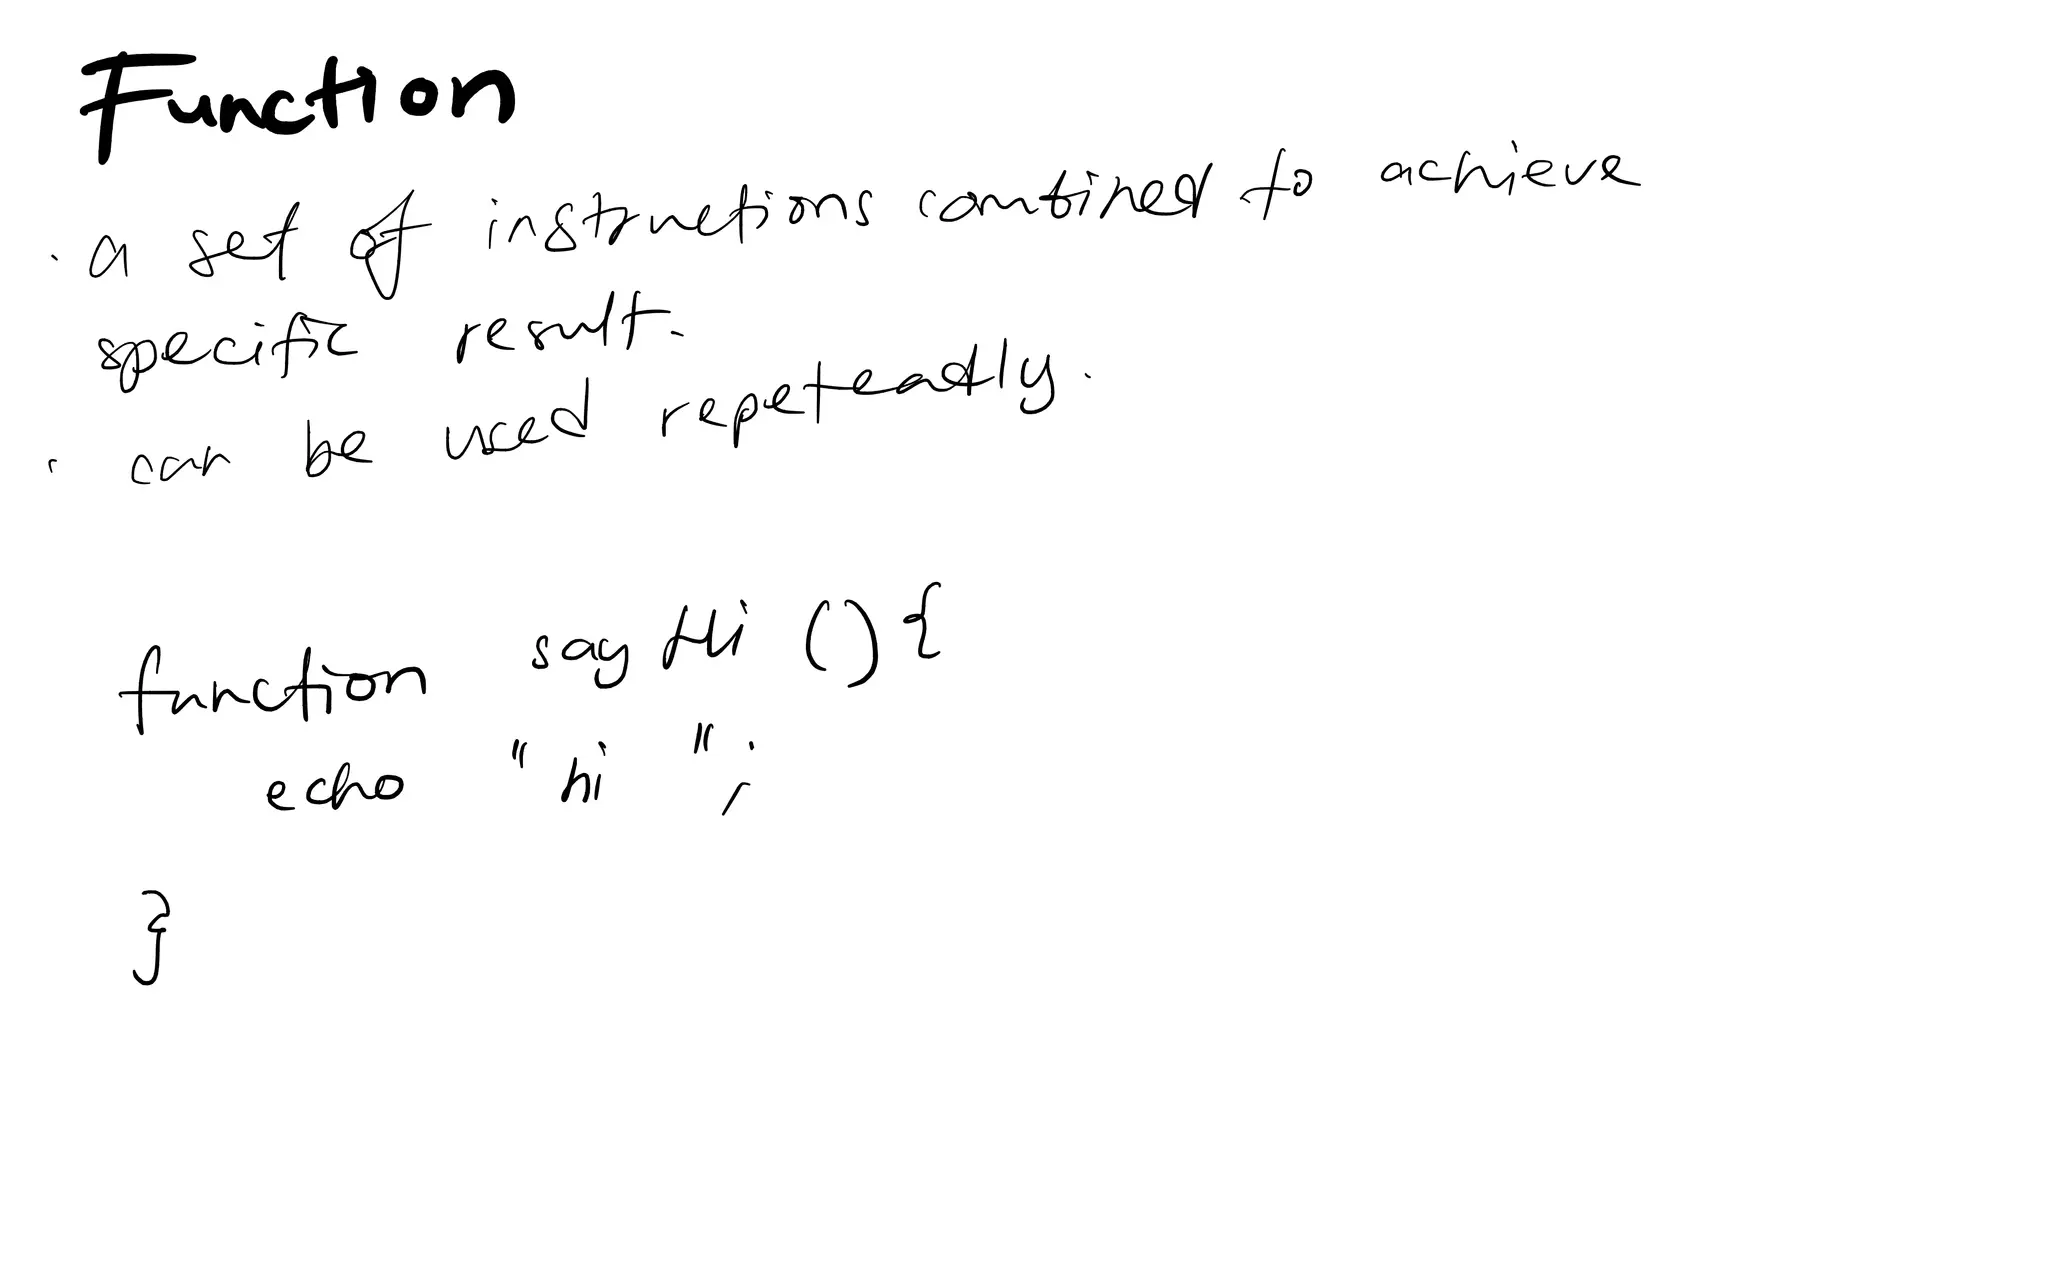 Function
· a set of instructions combined to achieve
specific result.
· can be used repeteadly.
function sayHi () {
echo "hi ";
}